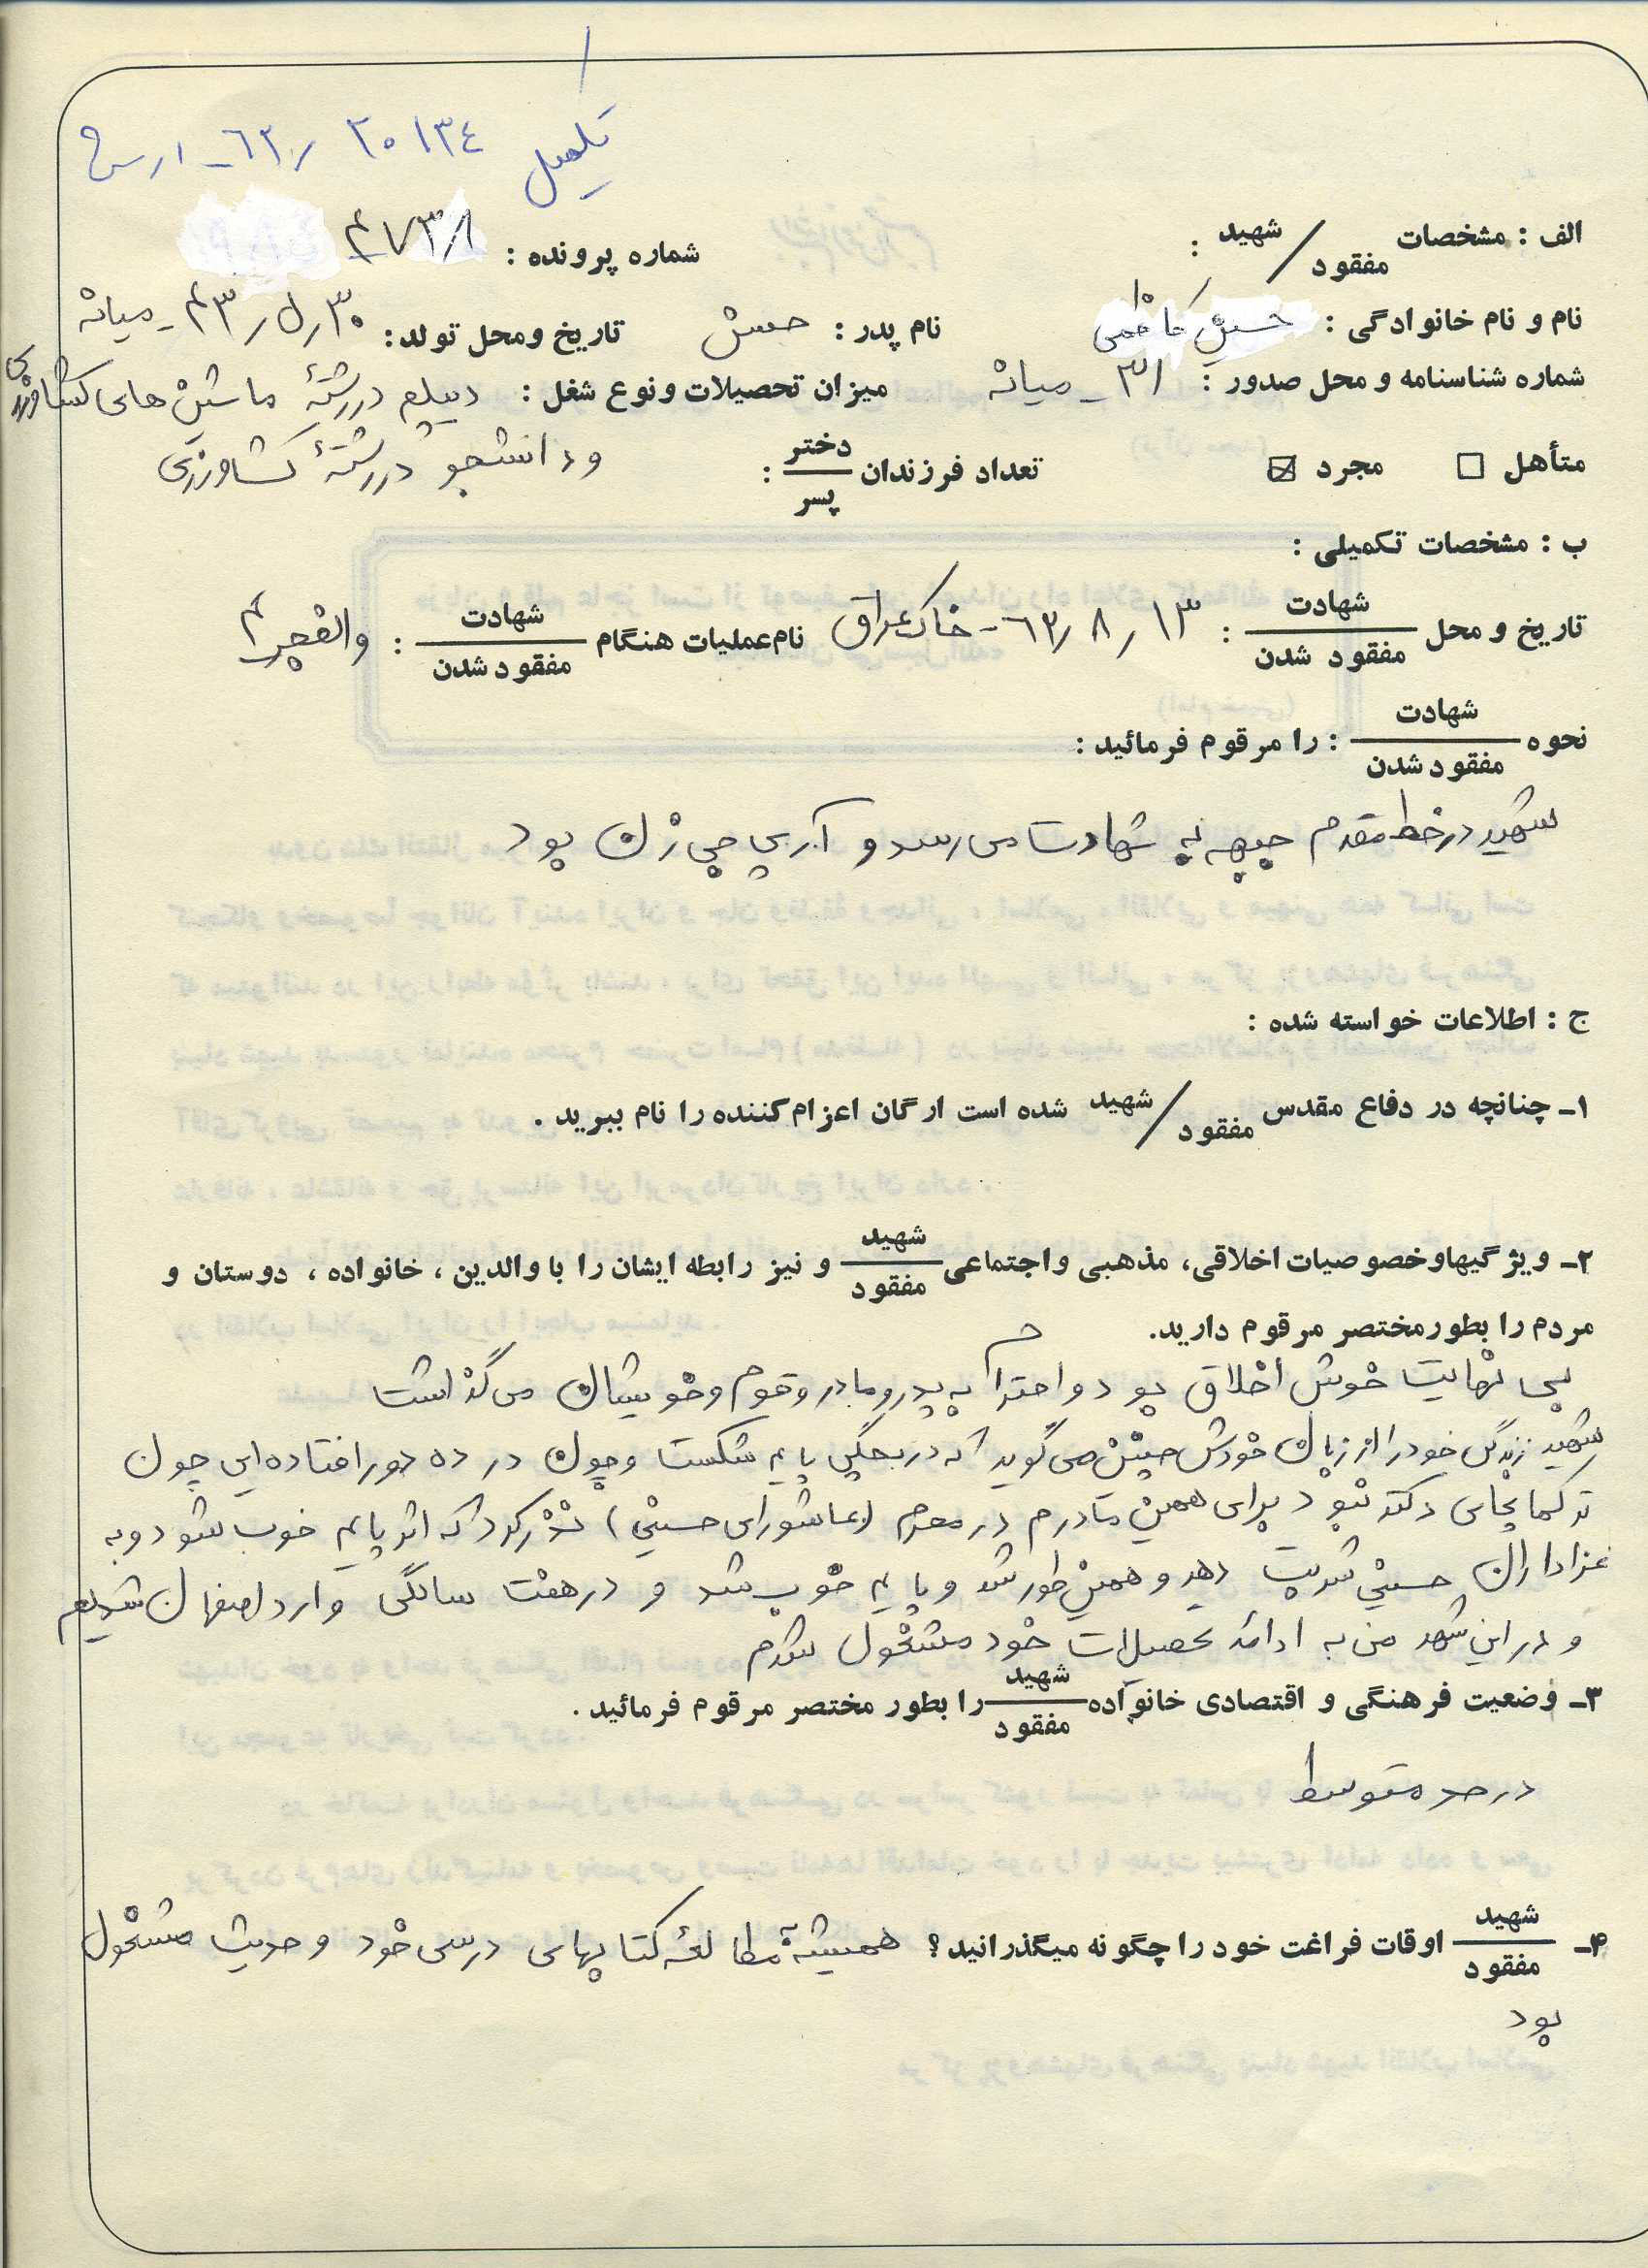 تکمیل ۲۰۱۳۴ / ۶۲ -
الف : مشخصات شهید / مفقود :
شماره پرونده : ۴۷۳۸
نام و نام خانوادگی : حسین کاظمی نام پدر : حسن تاریخ ومحل تولد : - میانه
شماره شناسنامه و محل صدور : ۳۱ - میانه میزان تحصیلات ونوع شغل : دیپلم دررشتهٔ ماشین های کشاورزی
متأهل ☐ مجرد ☒ تعداد فرزندان دختر / پسر : و دانشجو دررشتهٔ کشاورزی
ب : مشخصات تکمیلی :
تاریخ و محل شهادت / مفقود شدن : ۱۳ / ۸ / ۶۲ - خاک عراق نام عملیات هنگام شهادت / مفقود شدن : والفجر ۴
نحوه شهادت / مفقود شدن : را مرقوم فرمائید :
شهید در خط مقدم جبهه به شهادت می رسد و آر پی جی زن بود
ج : اطلاعات خواسته شده :
۱ـ چنانچه در دفاع مقدس شهید / مفقود شده است ارگان اعزام کننده را نام ببرید .
۲ـ ویژگیهاوخصوصیات اخلاقی، مذهبی واجتماعی شهید / مفقود و نیز رابطه ایشان را با والدین ، خانواده ، دوستان و
مردم را بطورمختصر مرقوم دارید.
بی نهایت خوش اخلاق بود و احترام به پدر و مادر و قوم و خویشان می گذاشت
شهید زندگی خود را از زبان خودش چنین می گوید که در بچگی پایم شکست و چون در ده دور افتاده ایی چون
ترکما بجای دکتر نبود برای همین مادرم در محرم (عاشورای حسینی) نذر کرد که اگر پایم خوب شود و به
عزاداران حسینی شربت دهد و همین طور شد و پایم خوب شد و در هفت سالگی وارد اصفهان شدیم
و در این شهر من به ادامهٔ تحصیلات خود مشغول شدم
۳ـ وضعیت فرهنگی و اقتصادی خانواده شهید / مفقود را بطور مختصر مرقوم فرمائید .
در حد متوسط
۴ـ شهید / مفقود اوقات فراغت خود را چگونه میگذرانید؟ همیشه مطالعهٔ کتابهای درسی خود و حدیث مشغول
بود